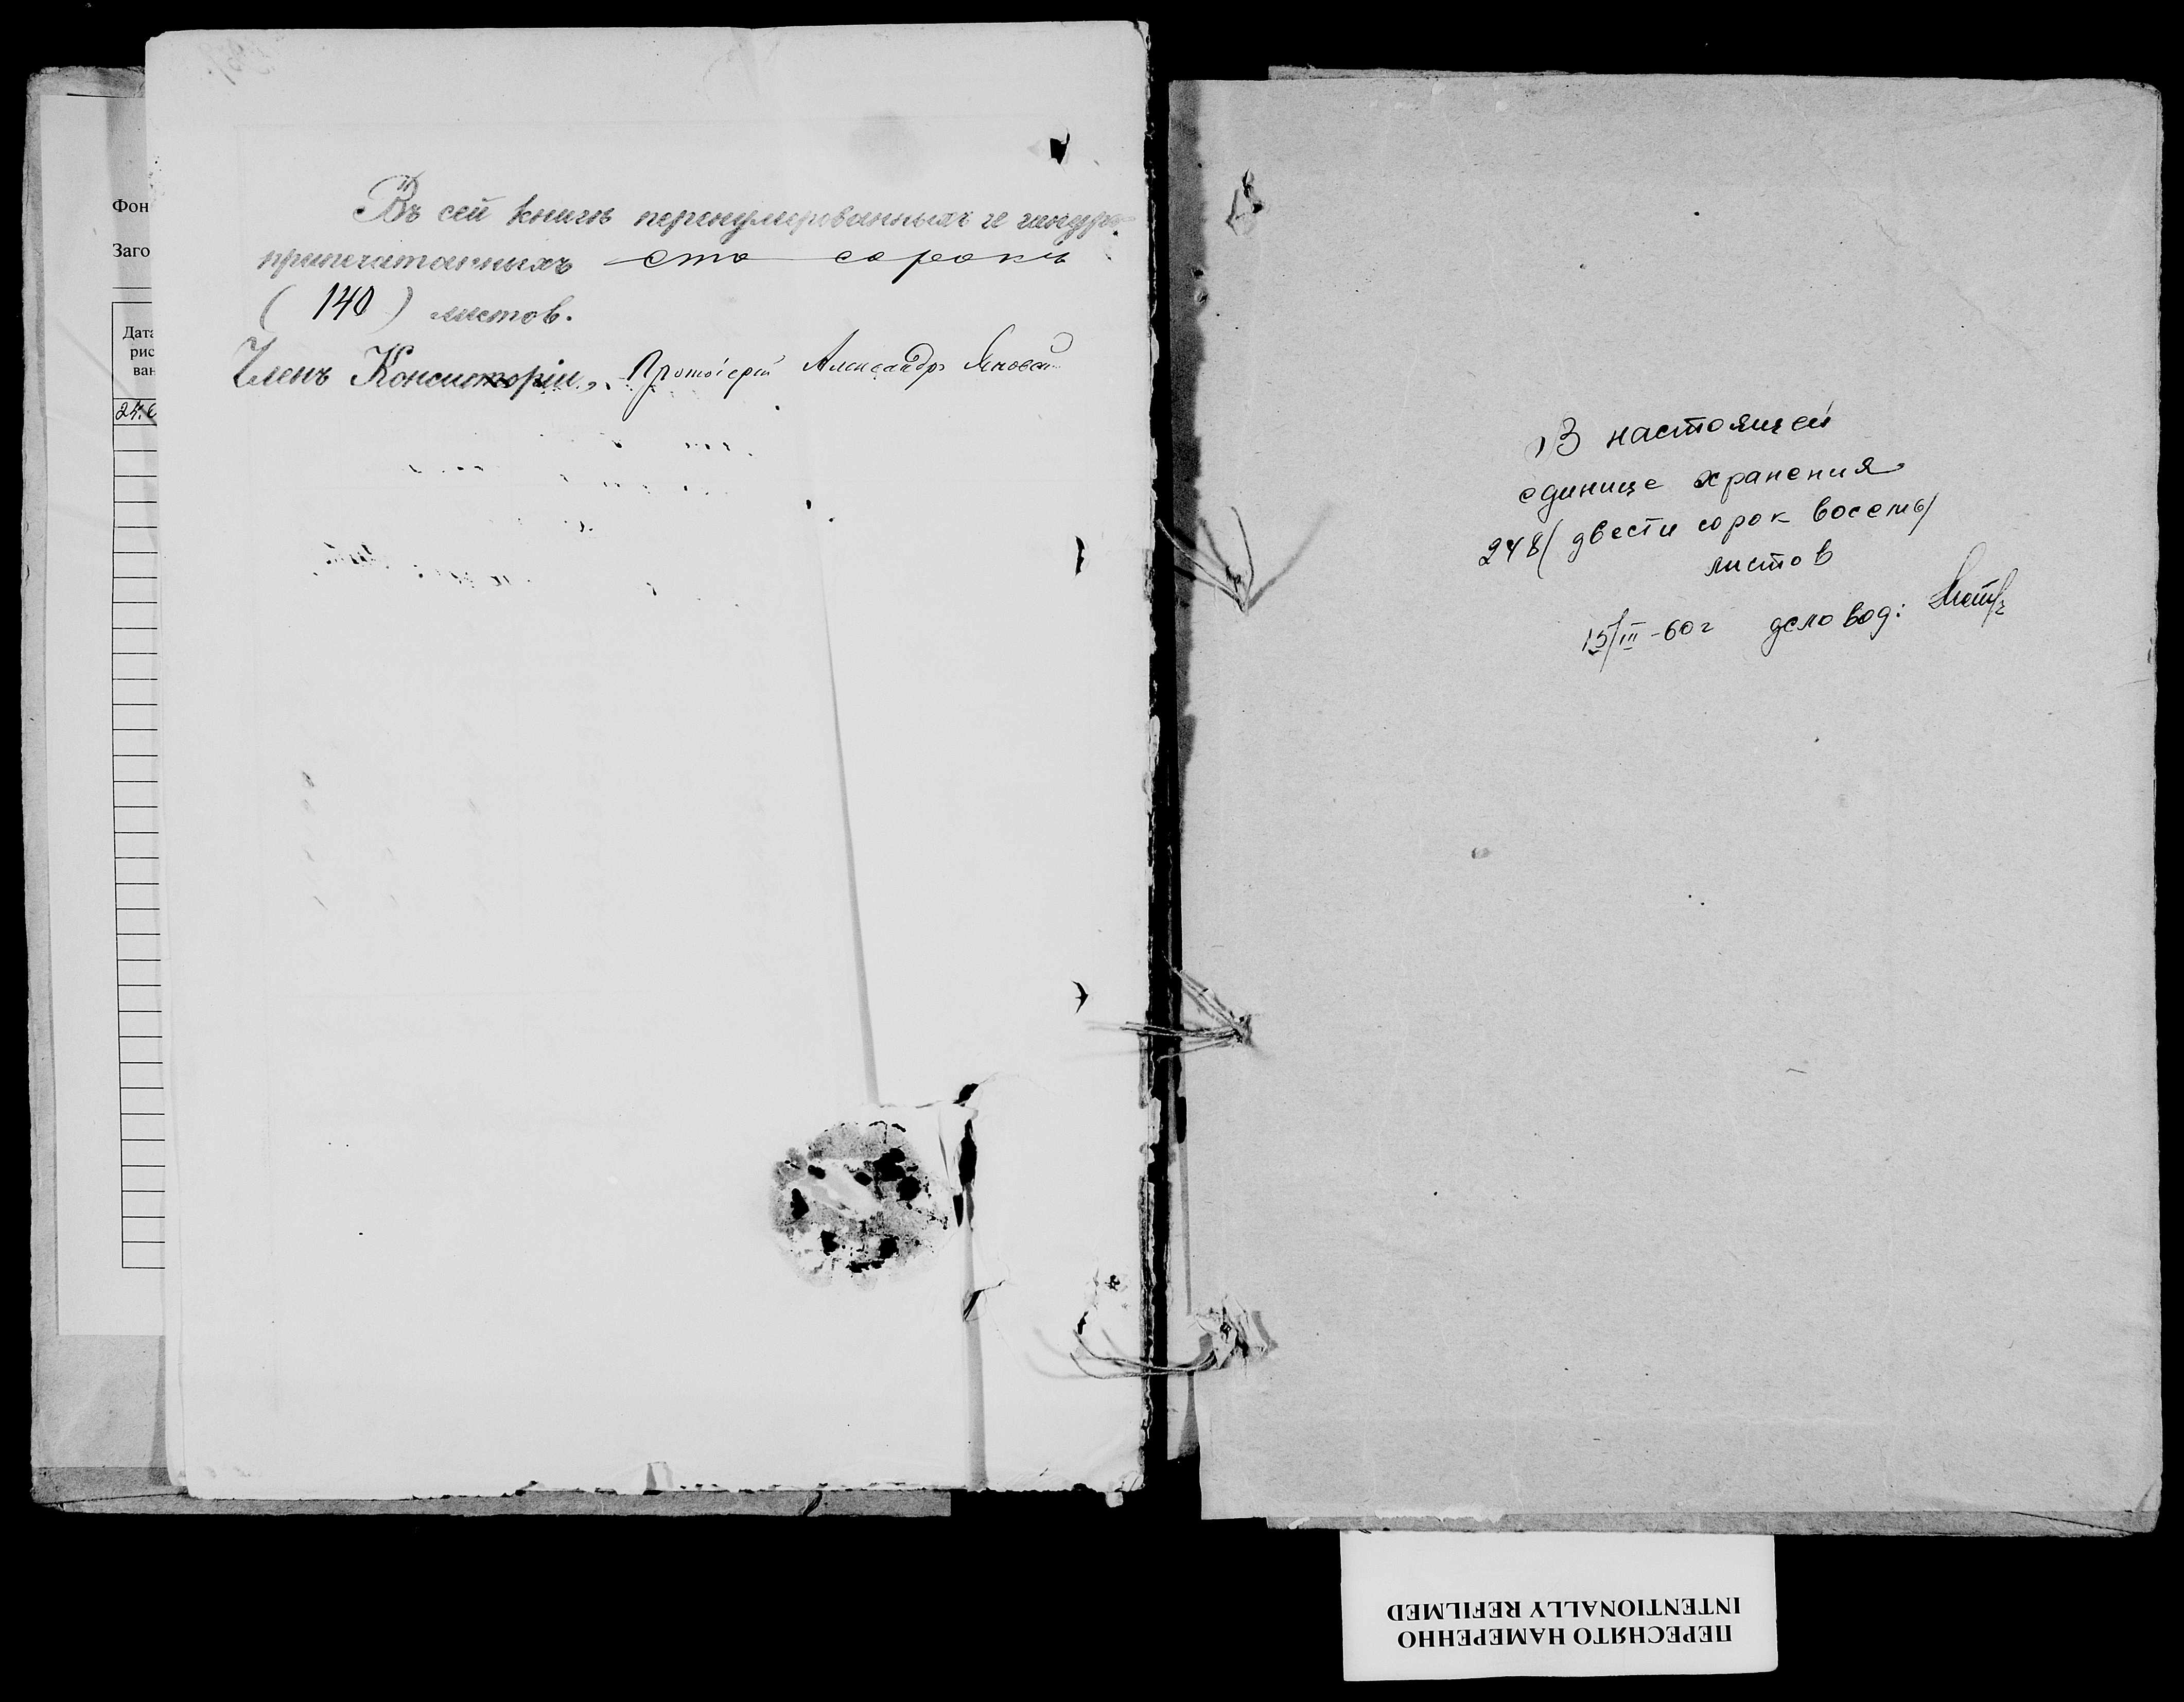 Фон
Заго
Дата
рис
ван
24.6
Въ сей книгѣ перенумерованныхъ и шнуро-
припечатанныхъ сто сорокъ
(140) листов.
Членъ Консисторіи, Протоіерей Александръ
В настоящей
единице хранения
248 (двести сорок восемь)
листов
15/III-60г деловод:
ПЕРЕСНЯТО НАМЕРЕННО
INTENTIONALLY REFILMED